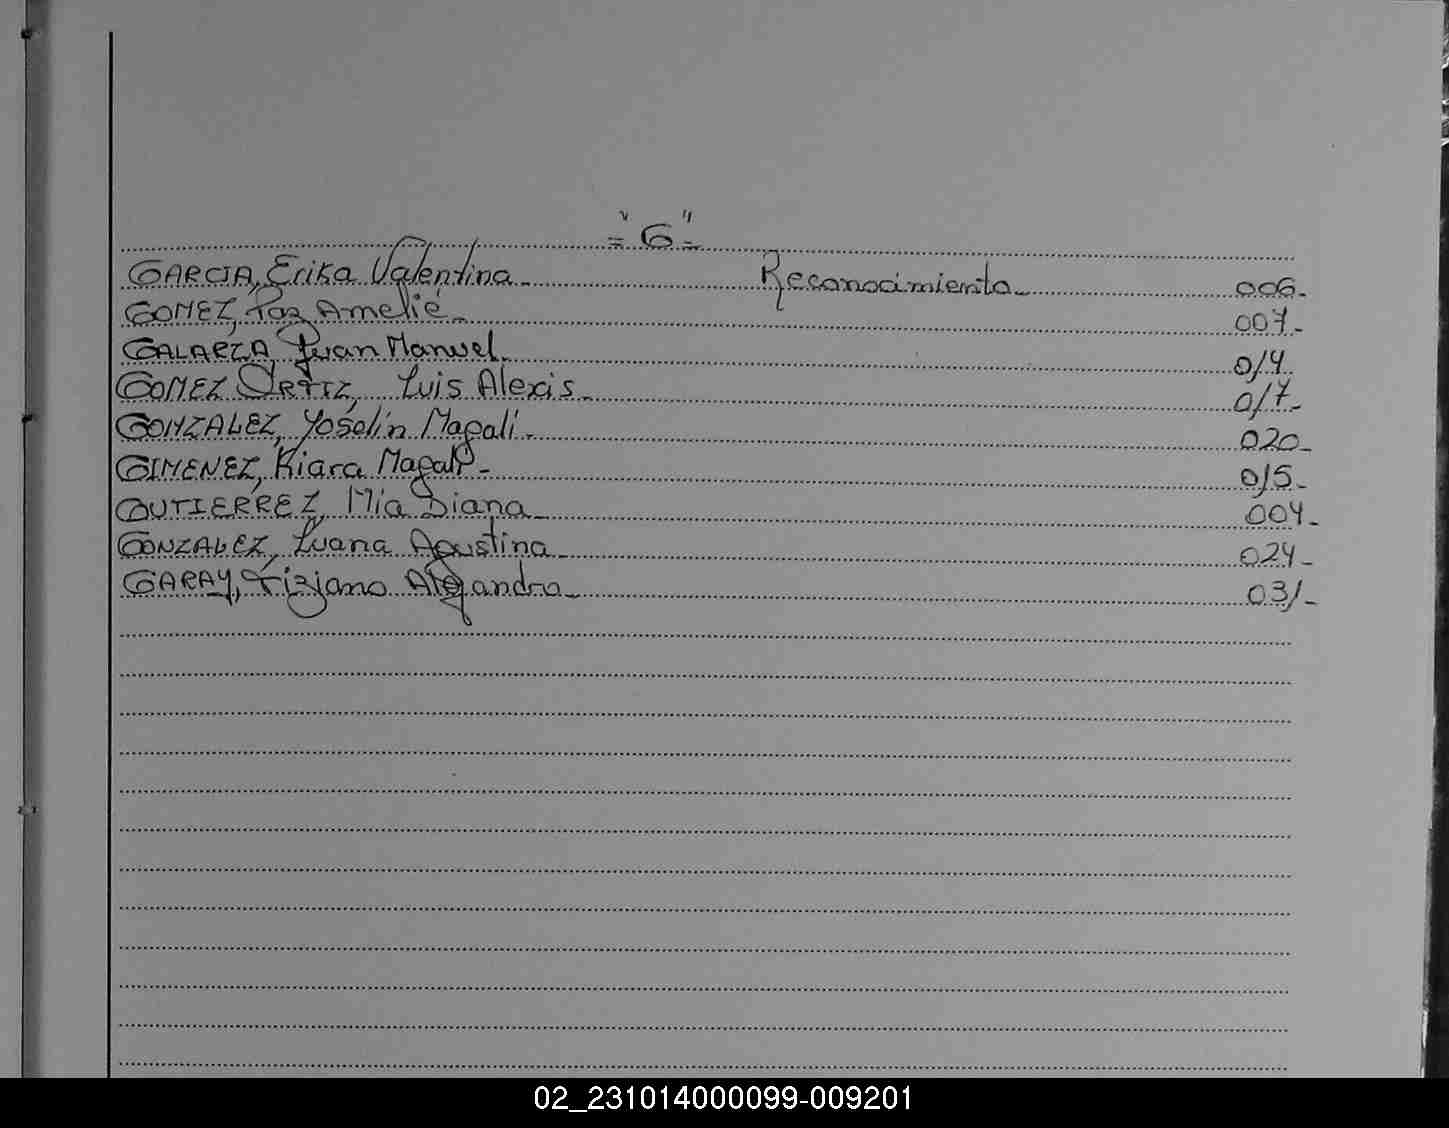 ="G"=
GARCIA, Erika Valentina_ Reconocimiento_ 006_
GOMEZ, Paz Amelié_ 007_
GALARZA, Juan Manuel_ 014_
GOMEZ ORTIZ, Luis Alexis_ 017_
GONZALEZ, Yoselín Magali_ 020_
GIMENEZ, Kiara Magalí_ 015_
GUTIERREZ, Mía Diana_ 004_
GONZALEZ, Luana Agustina_ 024_
GARAY, Tiziano Alejandro_ 031_
02_231014000099-009201